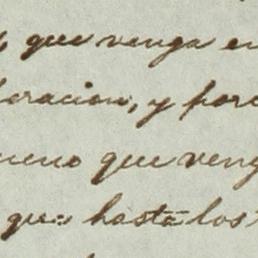 , que venga en
eracion, y por
ueno que veng
que hasta los